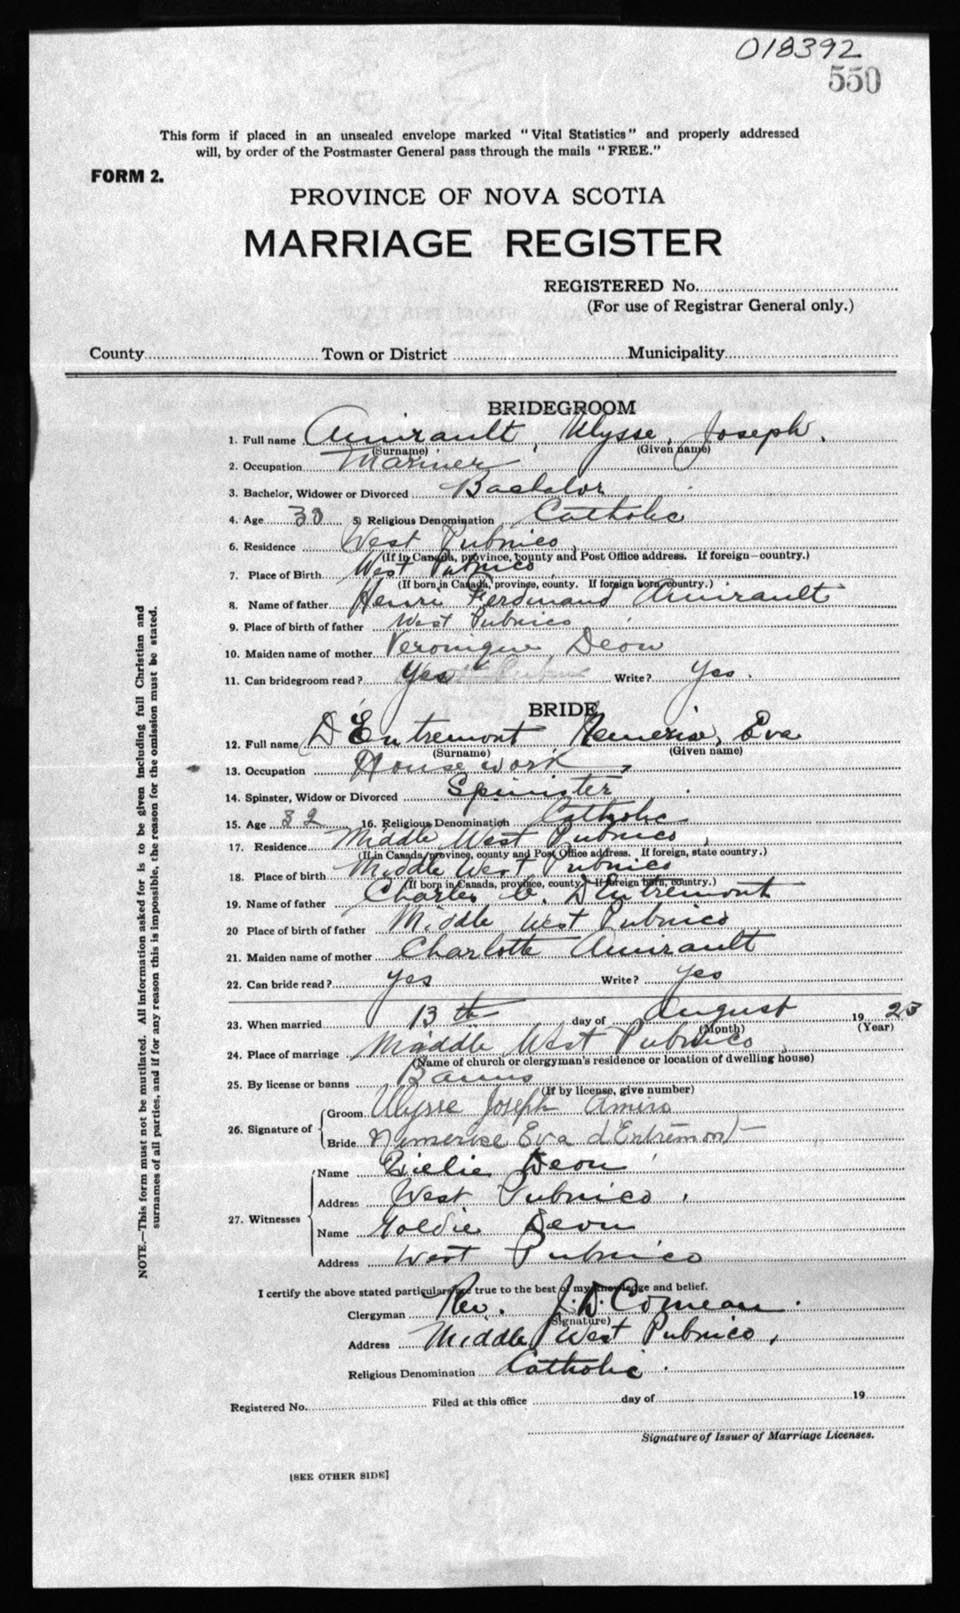 018392
550
This form if placed in an unsealed envelope marked "Vital Statistics" and properly addressed
will, by order of the Postmaster General pass through the mails "FREE."
FORM 2.
PROVINCE OF NOVA SCOTIA
MARRIAGE REGISTER
REGISTERED No.
(For use of Registrar General only.)
County Town or District Municipality
BRIDEGROOM
1. Full name Amirault, Ulysse, Joseph.
(Surname) (Given name)
2. Occupation Mariner
3. Bachelor, Widower or Divorced Bachelor
4. Age 5. Religious Denomination Catholic
6. Residence West Pubnico
(If in Canada, province, county and Post Office address. If foreign—country.)
7. Place of Birth West Pubnico
(If born in Canada, province, county. If foreign born, country.)
8. Name of father Henri Ferdinand Amirault
9. Place of birth of father West Pubnico
10. Maiden name of mother Veronique Deon
11. Can bridegroom read? Yes Write? Yes.
BRIDE
12. Full name D'Entremont Eva
(Surname) (Given name)
13. Occupation House work
14. Spinster, Widow or Divorced Spinster
15. Age 32 16. Religious Denomination Catholic
17. Residence Middle West Pubnico
(If in Canada, province, county and Post Office address. If foreign, state country.)
18. Place of birth Middle West Pubnico
(If born in Canada, province, county. If foreign born, country.)
19. Name of father Charles D'Entremont
20 Place of birth of father Middle West Pubnico
21. Maiden name of mother Charlotte Amirault
22. Can bride read? Yes Write? Yes
23. When married 13th day of August 1923
(Month) (Year)
24. Place of marriage Middle West Pubnico
(Name of church or clergyman's residence or location of dwelling house)
25. By license or banns Banns
(If by license, give number)
26. Signature of
Groom Ulysse Joseph Amiro
Bride Eva d'Entremont
27. Witnesses
Name Deon
Address West Pubnico.
Name Goldie Deon
Address West Pubnico
I certify the above stated particulars are true to the best of my knowledge and belief.
Clergyman Rev. J. D. Comeau.
(Signature)
Address Middle West Pubnico,
Religious Denomination Catholic.
Registered No. Filed at this office day of 19
Signature of Issuer of Marriage Licenses.
[SEE OTHER SIDE]
NOTE.—This form must not be mutilated. All information asked for is to be given including full Christian and
surnames of all parties, and if for any reason this is impossible, the reason for the omission must be stated.